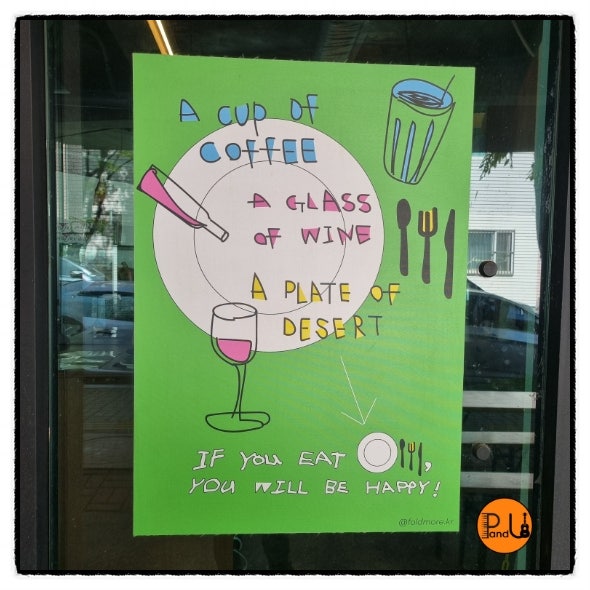 A CUP OF
COFFEE
A GLASS
OF WINE
A PLATE OF
DESERT
IF YOU EAT ,
YOU WILL BE HAPPY!
@foldmore.kr
P and U